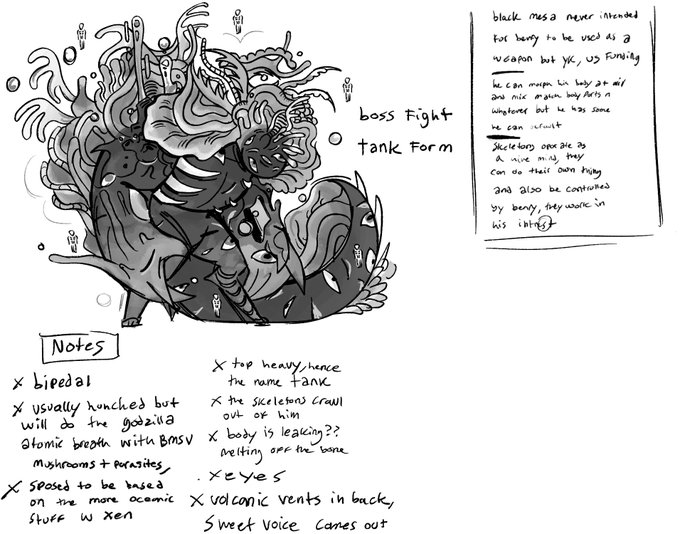 boss Fight
tank Form
black mesa never intended
for benry to be used as a
weapon but yk, us Funding
he can morph his body at air
and mix match body parts n
whatever but he has some
he can default
skeletons operate as
a hive mind, they
can do their own thing
and also be controlled
by benry, they work in
his intrest
Notes
x bipedal
x usually hunched but
will do the godzilla
atomic breath with BMSV
mushrooms + parasites,
x sposed to be based
on the more oceanic
stuff w xen
x top heavy, hence
the name tank
x the skeletons crawl
out of him
x body is leaking??
melting off the bone
x eyes
x volcanic vents in back,
sweet voice comes out